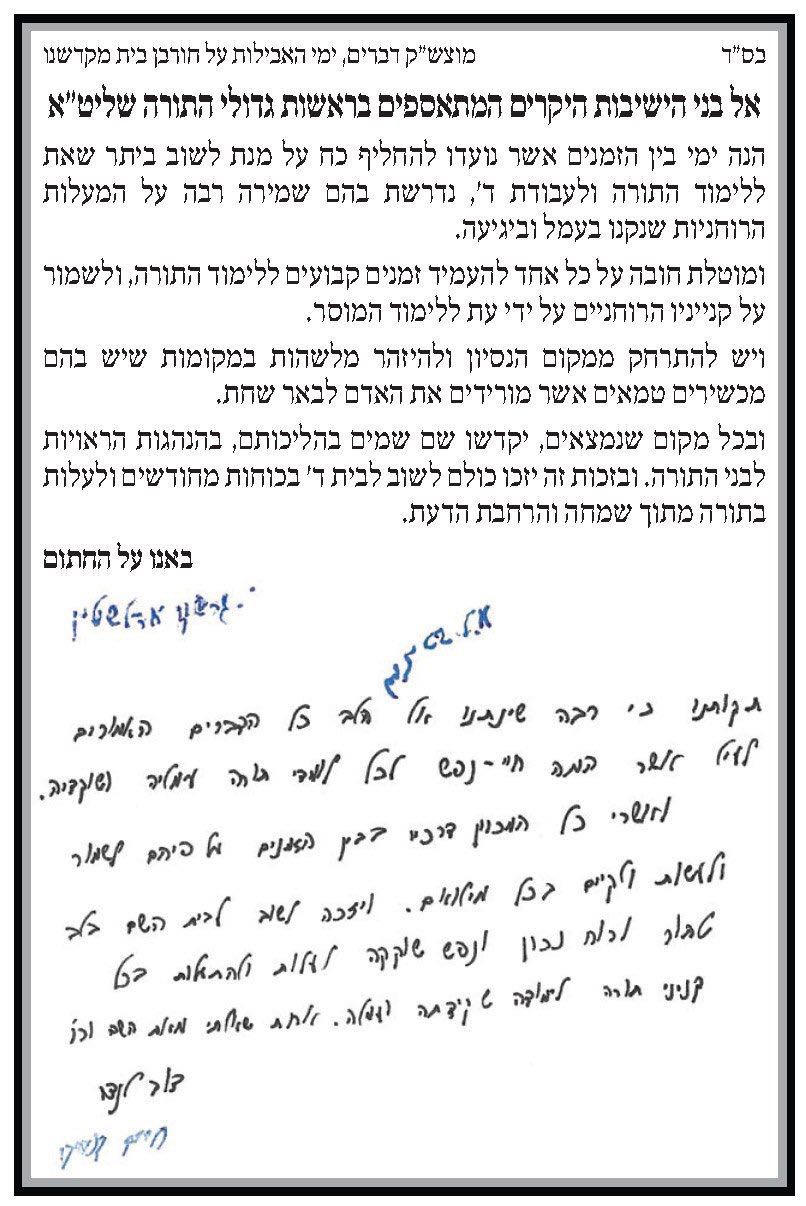 בס״ד מוצש״ק דברים, ימי האבילות על חורבן בית מקדשנו
אל בני הישיבות היקרים המתאספים בראשות גדולי התורה שליט״א
הנה ימי בין הזמנים אשר נועדו להחליף כח על מנת לשוב ביתר שאת
ללימוד התורה ולעבודת ד', נדרשת בהם שמירה רבה על המעלות
הרוחניות שנקנו בעמל וביגיעה.
ומוטלת חובה על כל אחד להעמיד זמנים קבועים ללימוד התורה, ולשמור
על קנייניו הרוחניים על ידי עת ללימוד המוסר.
ויש להתרחק ממקום הנסיון ולהיזהר מלשהות במקומות שיש בהם
מכשירים טמאים אשר מורידים את האדם לבאר שחת.
ובכל מקום שנמצאים, יקדשו שם שמים בהליכותם, בהנהגות הראויות
לבני התורה. ובזכות זה יזכו כולם לשוב לבית ד' בכוחות מחודשים ולעלות
בתורה מתוך שמחה והרחבת הדעת.
באנו על החתום
גרשון אדלשטיין
תקותנו כי רבה שינתנו אל הלב כל הדברים האמורים
לעיל אשר המה חיי-נפש לכל לומדי תורה עמליה ושוקדיה.
ואשרי כל המכוון דרכיו בבין הזמנים על פיהם לשמור
ולעשות ולקיים בכל מילואם. ויזכה לשוב לבית השם בלב
טהור ורוח נכון ונפש שוקקה לעלות ולהתעלות בכל
קניני תורה לימודה שקידתה ועמלה. אחת שאלתי מאת השם וכו'
דוב לנדו
חיים קניבסקי